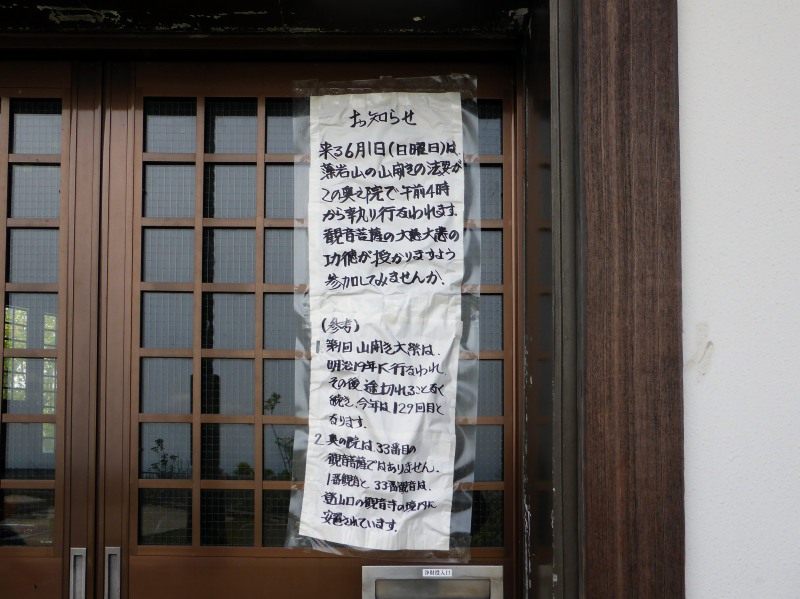 お知らせ
来る6月1日(日曜日)は、
藻岩山の山開きの法要が
この奥之院で午前4時
から執り行なわれます。
観音菩薩の大慈大悲の
功徳が授かりますよう
参加してみませんか。
(参考)
1 第1回山開き大祭は、
明治19年に行なわれ、
その後途切れることなく
続き、今年は129回目と
なります。
2 奥の院は、33番目の
観音菩薩ではありません。
1番観音と33番観音は、
登山口の観音寺の境内に
安置されています。
浄財投入口